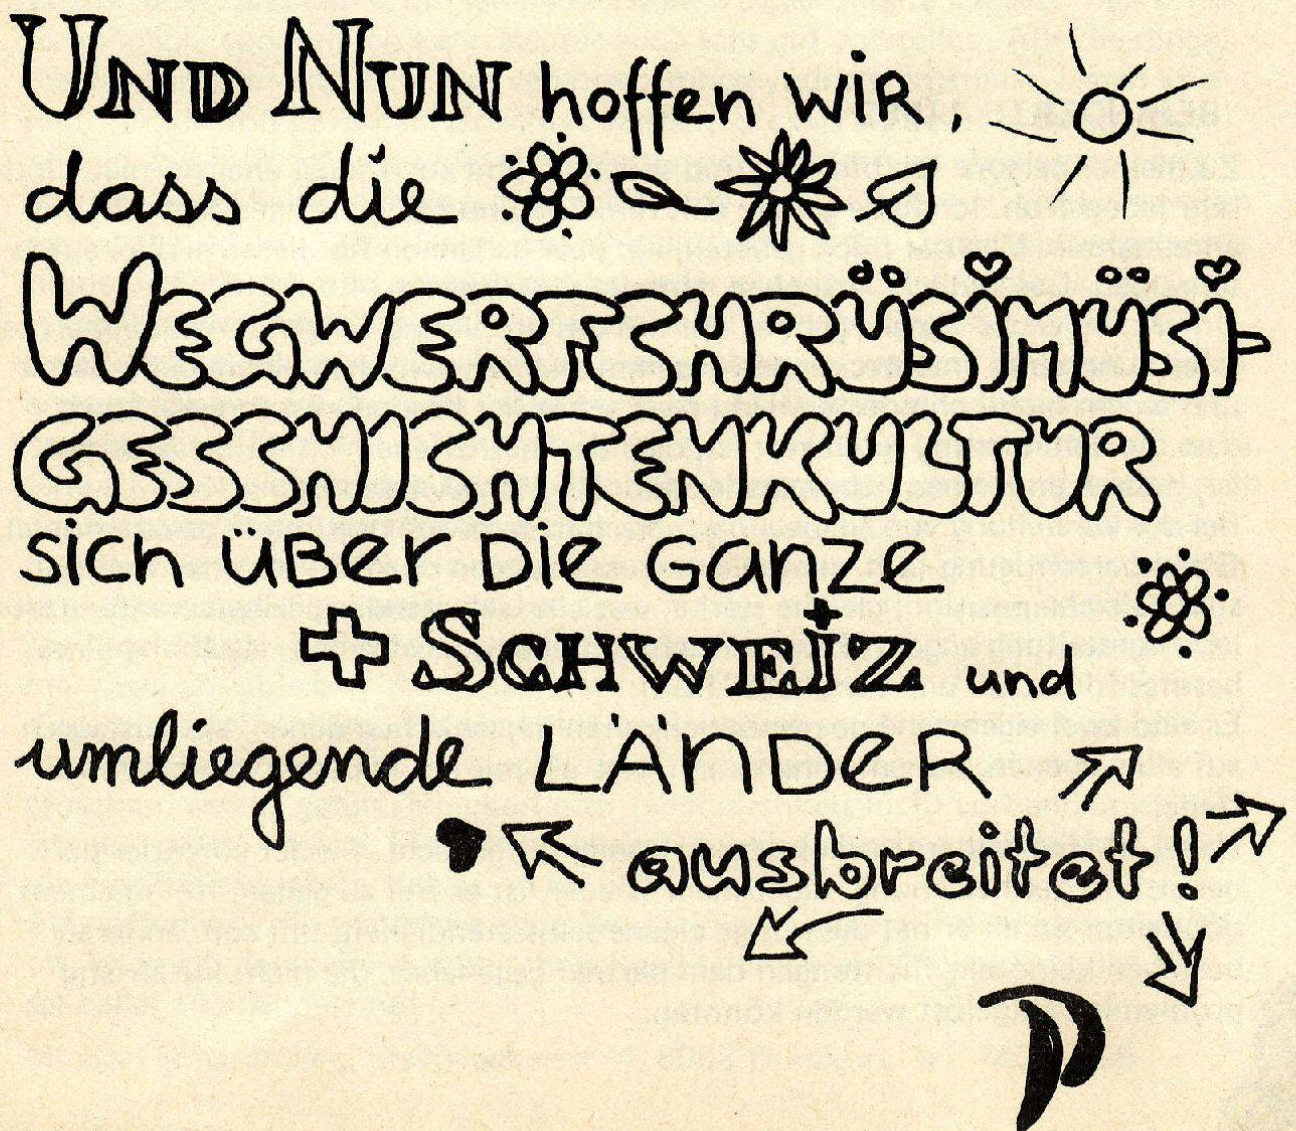 UND NUN hoffen WIR,
dass die
WEGWERFCHRÜSIMÜSI-
GESCHICHTENKULTUR
sich ÜBER DIE GANZE
SCHWEIZ und
umliegende LÄNDER
ausbreitet!
P